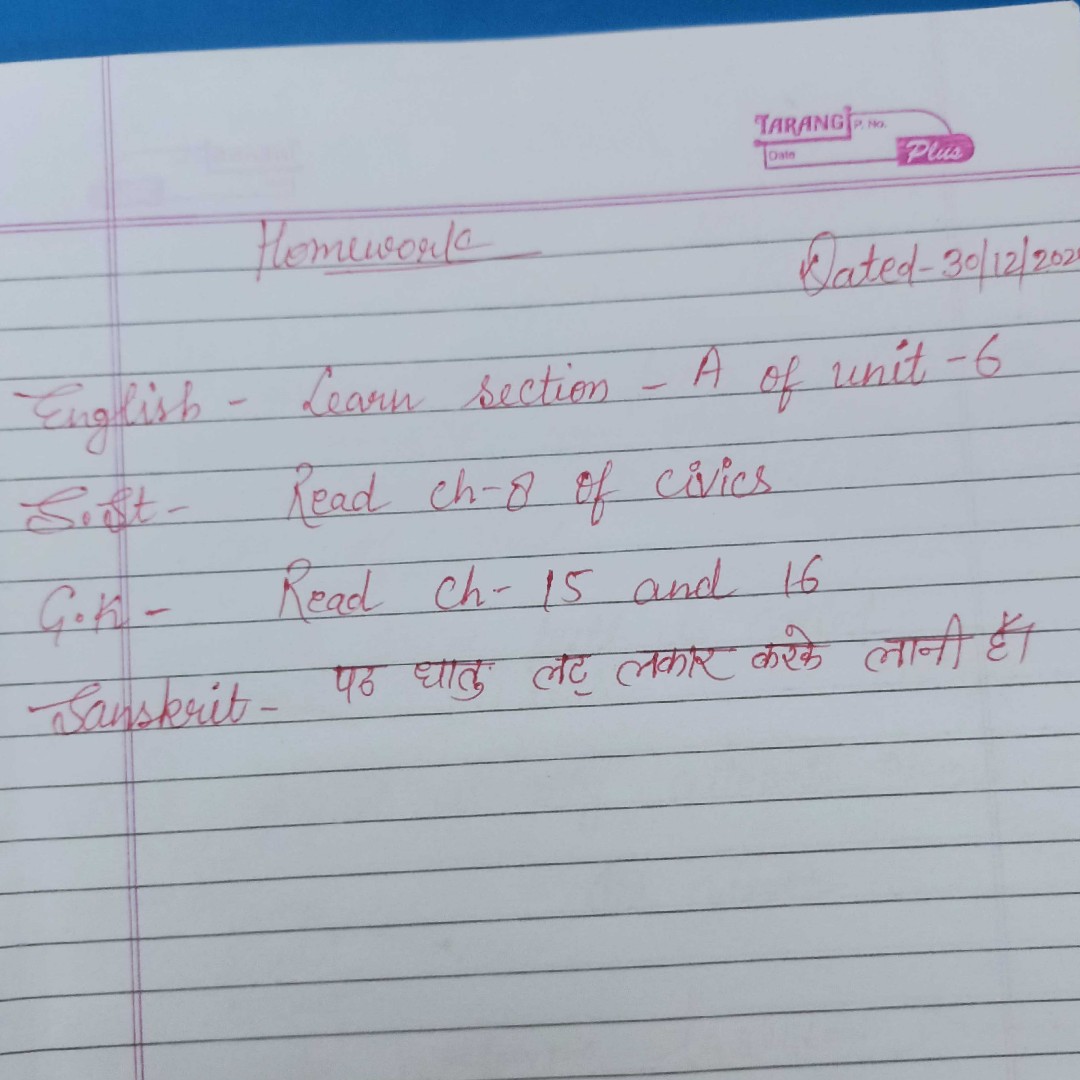 TARANG P. No.
Date Plus
Homework
Dated- 30/12/202
English - Learn section - A of unit - 6
S.St - Read ch-8 of civics
G.K - Read ch- 15 and 16
Sanskrit - पठ धातु लट् लकार करके लानी है।